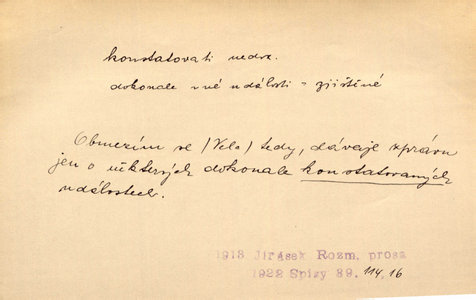 konstatovati nedok.
dokonale -né události = zjištěné
Obmezím se /Vele/ tedy, dávaje zprávu
jen o některých dokonale konstatovaných
událostech.
1913 Jirásek Rozm. prosa
1922 Spisy 39. 114, 16